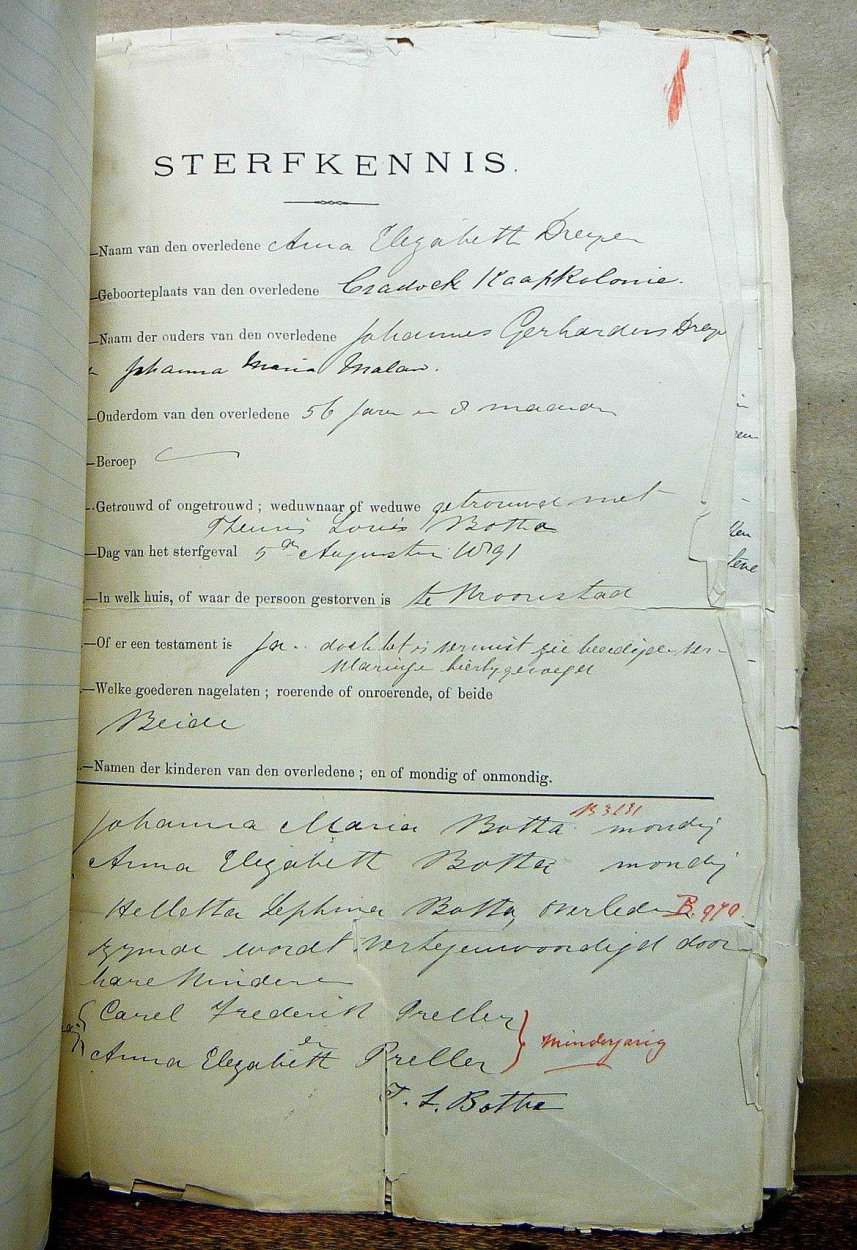 STERFKENNIS.
—Naam van den overledene Anna Elizabeth Dreyer
—Geboorteplaats van den overledene Cradock Kaapkolonie.
—Naam der ouders van den overledene Johannes Gerhardus Drey
Johanna Maria Malan.
—Ouderdom van den overledene 56 Jaren en 8 maanden
—Beroep
—Getrouwd of ongetrouwd ; weduwnaar of weduwe getrouwd met
Theunis Louis Botha
—Dag van het sterfgeval 5de Augustus 1891
—In welk huis, of waar de persoon gestorven is te Kroonstad
—Of er een testament is Ja. doch het is vermist zie beedigde ver-
klaringe hierby gevoegd
—Welke goederen nagelaten ; roerende of onroerende, of beide
Beide
—Namen der kinderen van den overledene ; en of mondig of onmondig.
Johanna Maria Botha mondig
Anna Elizabeth Botha mondig
Helletta Botha overleden B. 970.
zynde wordt vertegenwoordigd door
hare kinderen
Carel Frederik Preller
en
Anna Elizabeth Preller } minderjarig
T. L. Botha